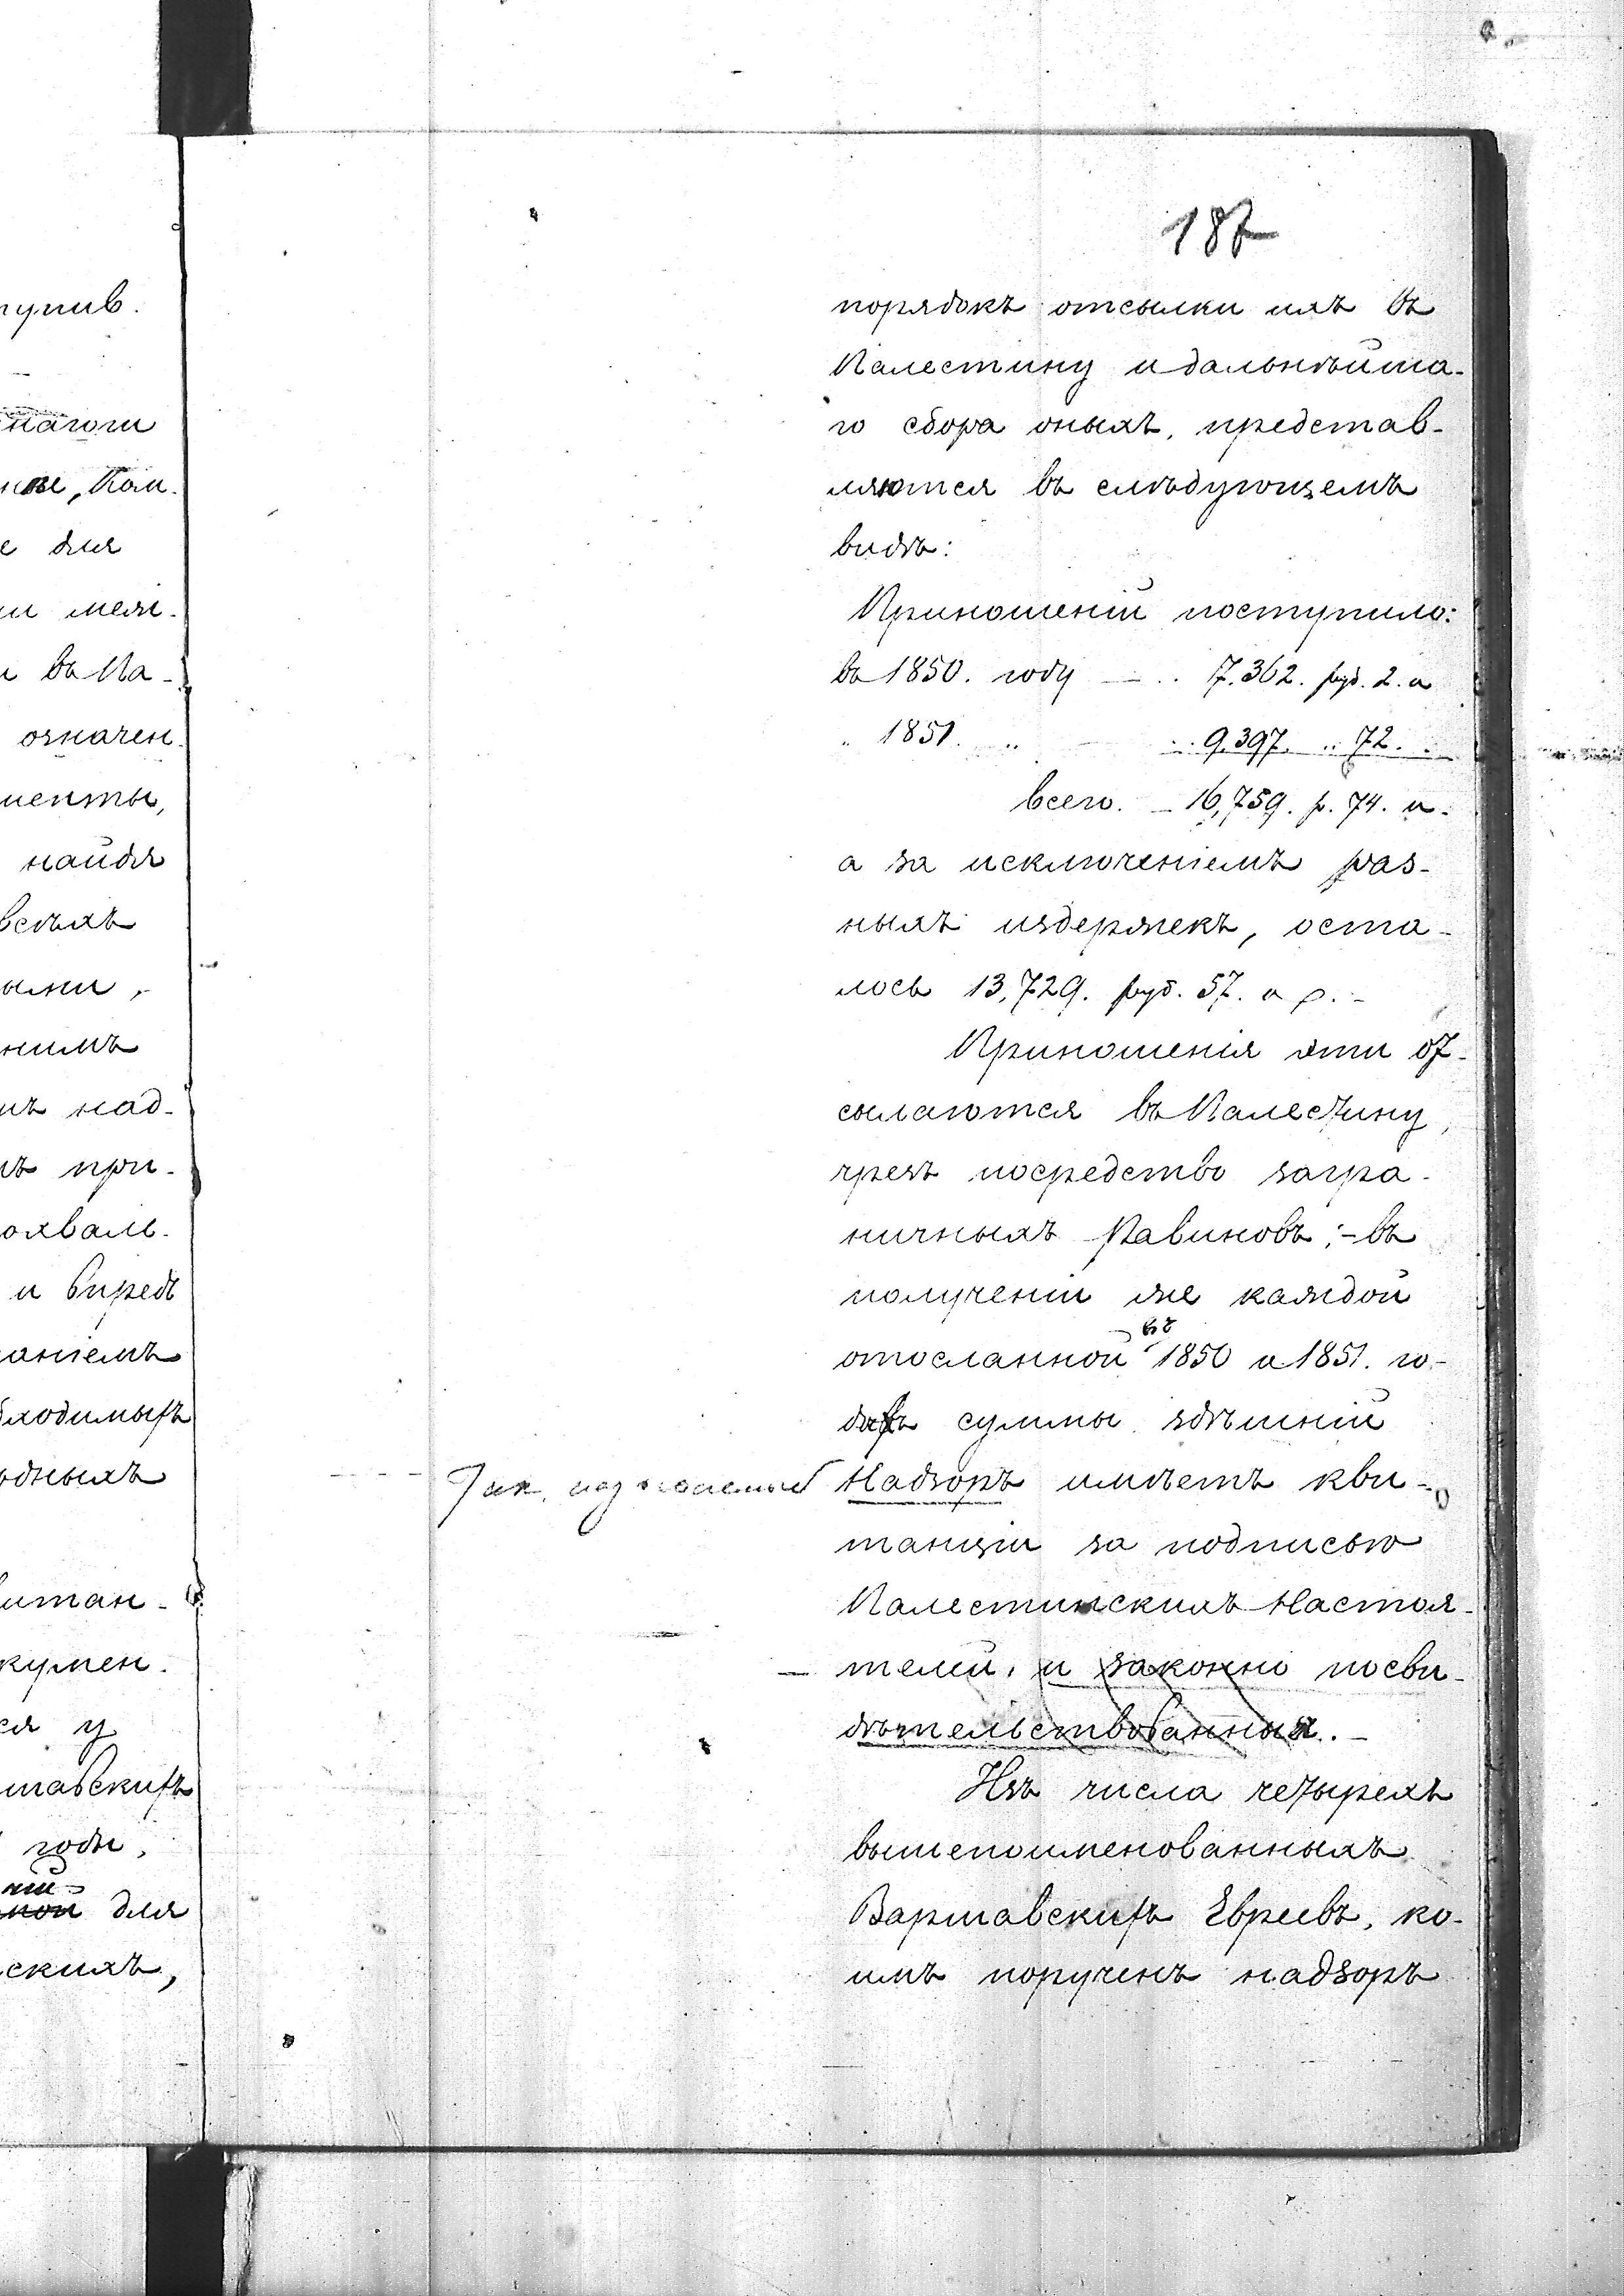 187
порядокъ отсылки ихъ въ
Палестину и дальнѣйша-
го сбора оныхъ, представ-
ляются въ слѣдующемъ
видѣ:
Приношеній поступило:
въ 1850. году — .. 7.362. руб. 2. к
" 1851. " .. 9,397. .. 72. .
всего. — 16,759. р. 74. к.
а за исключеніемъ раз-
ныхъ издержекъ, оста-
лось 13,729. руб. 57. к с. -
Приношенія эти от-
сылаются въ Палестину,
чрезъ посредство загра-
ничныхъ Равиновъ; - въ
полученіи же каждой
въ
отосланной 1850 и 1851. го-
дахъ суммы здѣшній
Надзоръ имѣетъ кви-
танціи за подписью
Палестинскихъ Настоя-
телей, и законно посви-
дѣтельствованныя. -
Изъ числа четырехъ
вышепоименованныхъ
Варшавскихъ Евреевъ, ко-
имъ порученъ надзоръ
тупив.
е для
и въ Па-
означен.
менты,
найдя
всѣхъ
нимъ
над-
при-
охваль-
и впредь
аніемъ
бходимыхъ
витан-
кумен.
ся у
шавскихъ
годы,
для
скихъ,